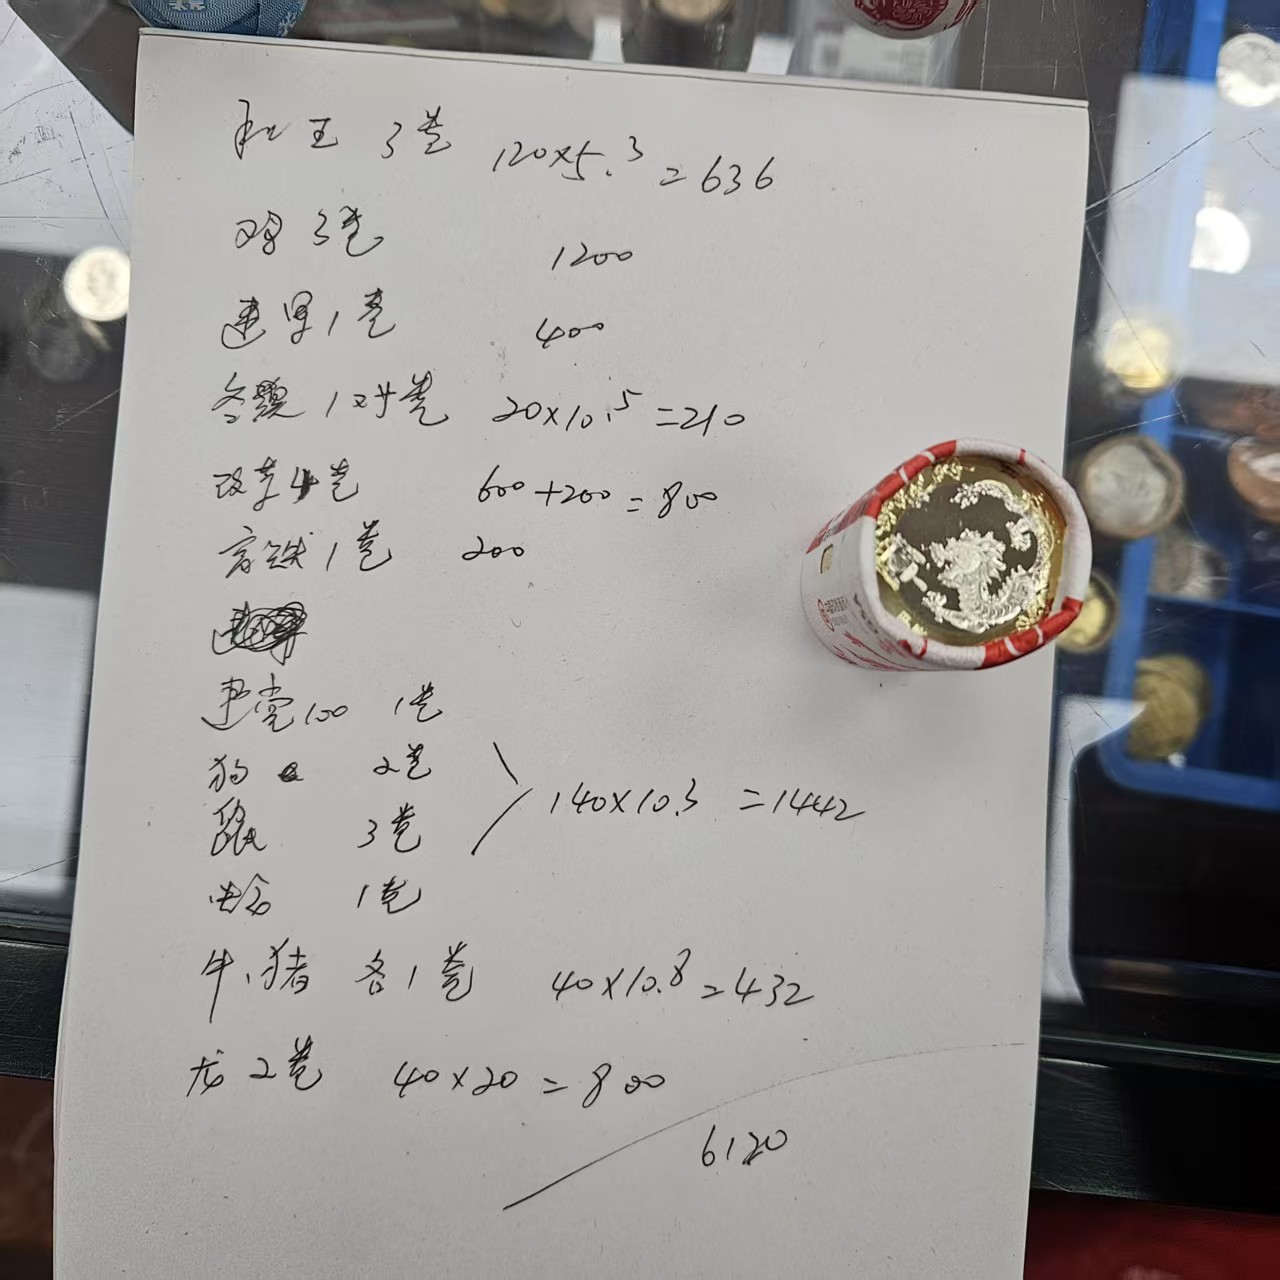 和五 3卷 120×5.3=636
鸡 3卷 1200
建军1卷 400
冬奥 1对卷 20×10.5=210
改革4卷 600+200=800
高铁1卷 200
建党100 1卷
狗 2卷
鼠 3卷 140×10.3 =1442
1卷
牛、猪 各1卷 40×10.8=432
龙2卷 40×20=800
6120